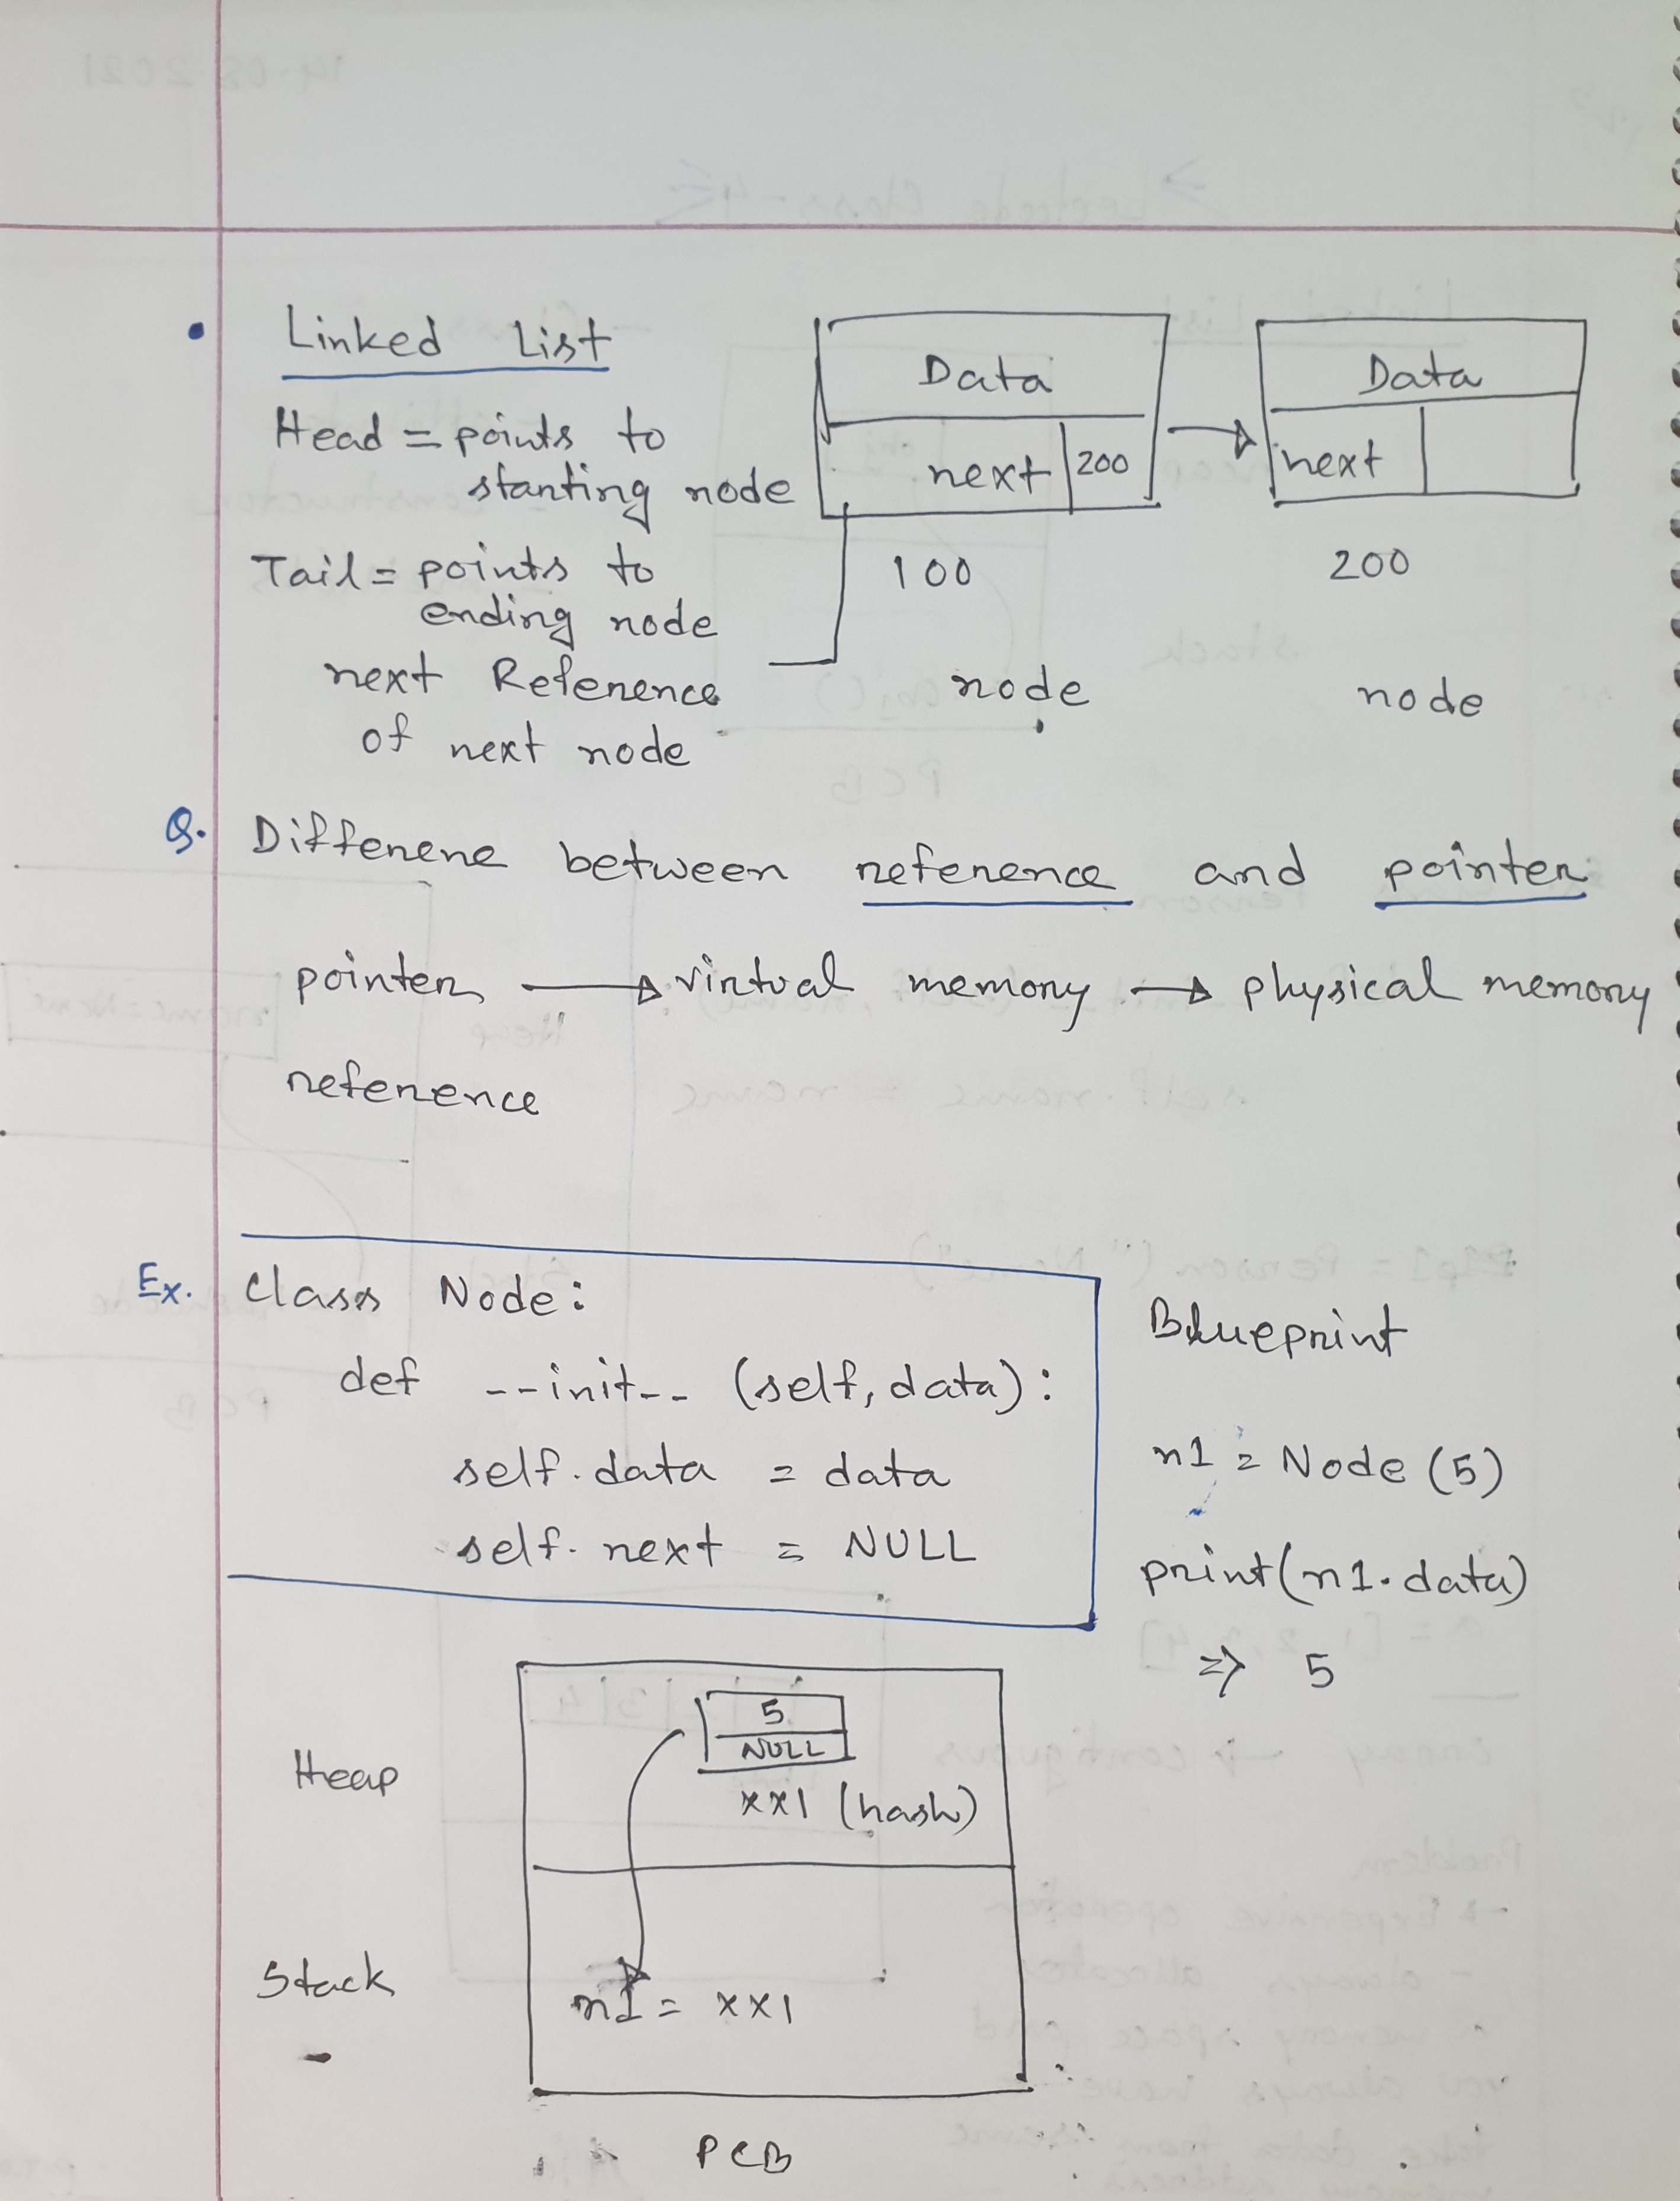 Linked List
Head = points to
starting node
Tail = points to
ending node
next Reference
of next node
Data
next 200
100
node
Data
next
200
node
Q. Differene between reference and pointer
pointer → virtual memory → physical memory
reference
Ex. Class Node:
def --init-- (self, data):
self.data = data
self.next = NULL
Blueprint
n1 = Node (5)
print(n1.data)
⇒ 5
Heap
5
NULL
xx1 (hash)
Stack
n1 = xx1
PCB